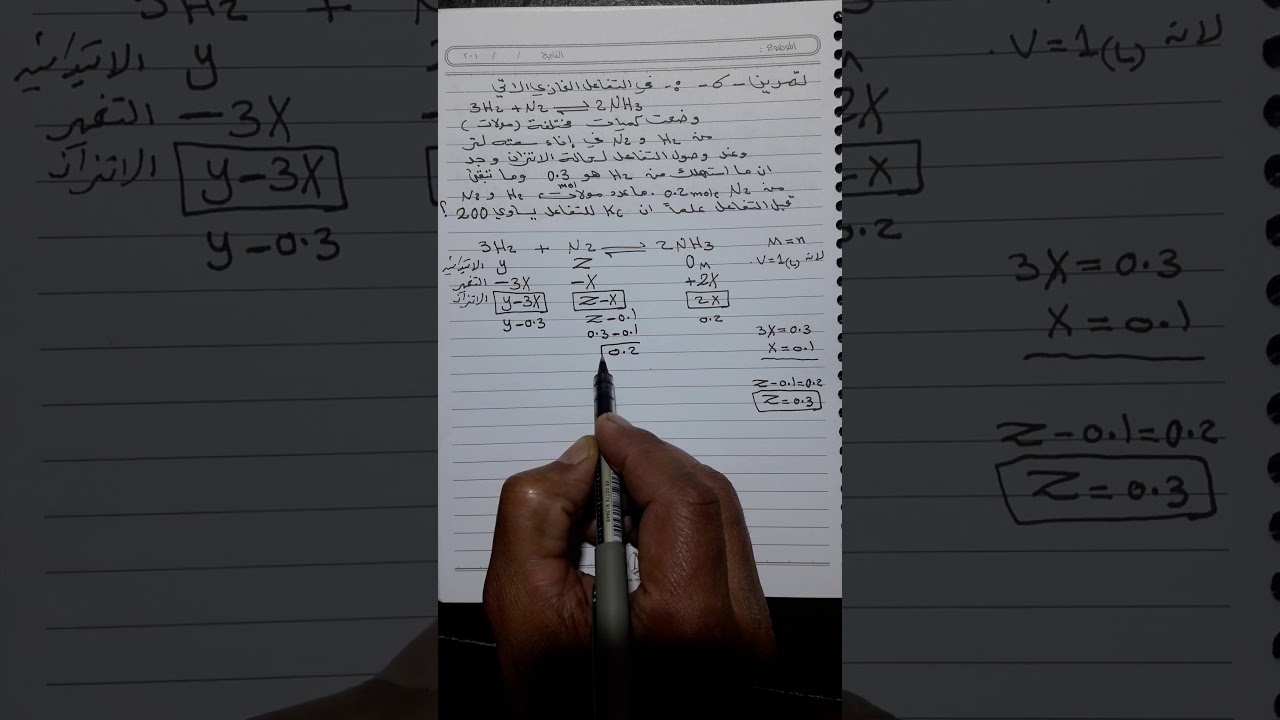 الموضوع : التاريخ / / ٢٠١
تمرين - 6 - :- في التفاعل الغازي الاتي
3H2 + N2 ⇌ 2NH3
وضعت كميات مختلفة (مولات)
من H2 و N2 في إناء سعته لتر
وعند وصول التفاعل لحالة الاتزان وجد
ان ما استهلك من H2 هو 0.3 mol وما تبقى
من N2 0.2 mole ، ما عدد مولات H2 و N2
قبل التفاعل علماً ان Kc للتفاعل يساوي 200 ؟
3H2 + N2 ⇌ 2NH3 M=n
الابتدائية y Z 0M لانه V=1(L).
التغير -3X -X +2X
الاتزان y-3X Z-X 2X
y-0.3 Z-0.1 0.2
0.3-0.1 3X=0.3
0.2 X=0.1
Z-0.1=0.2
Z=0.3